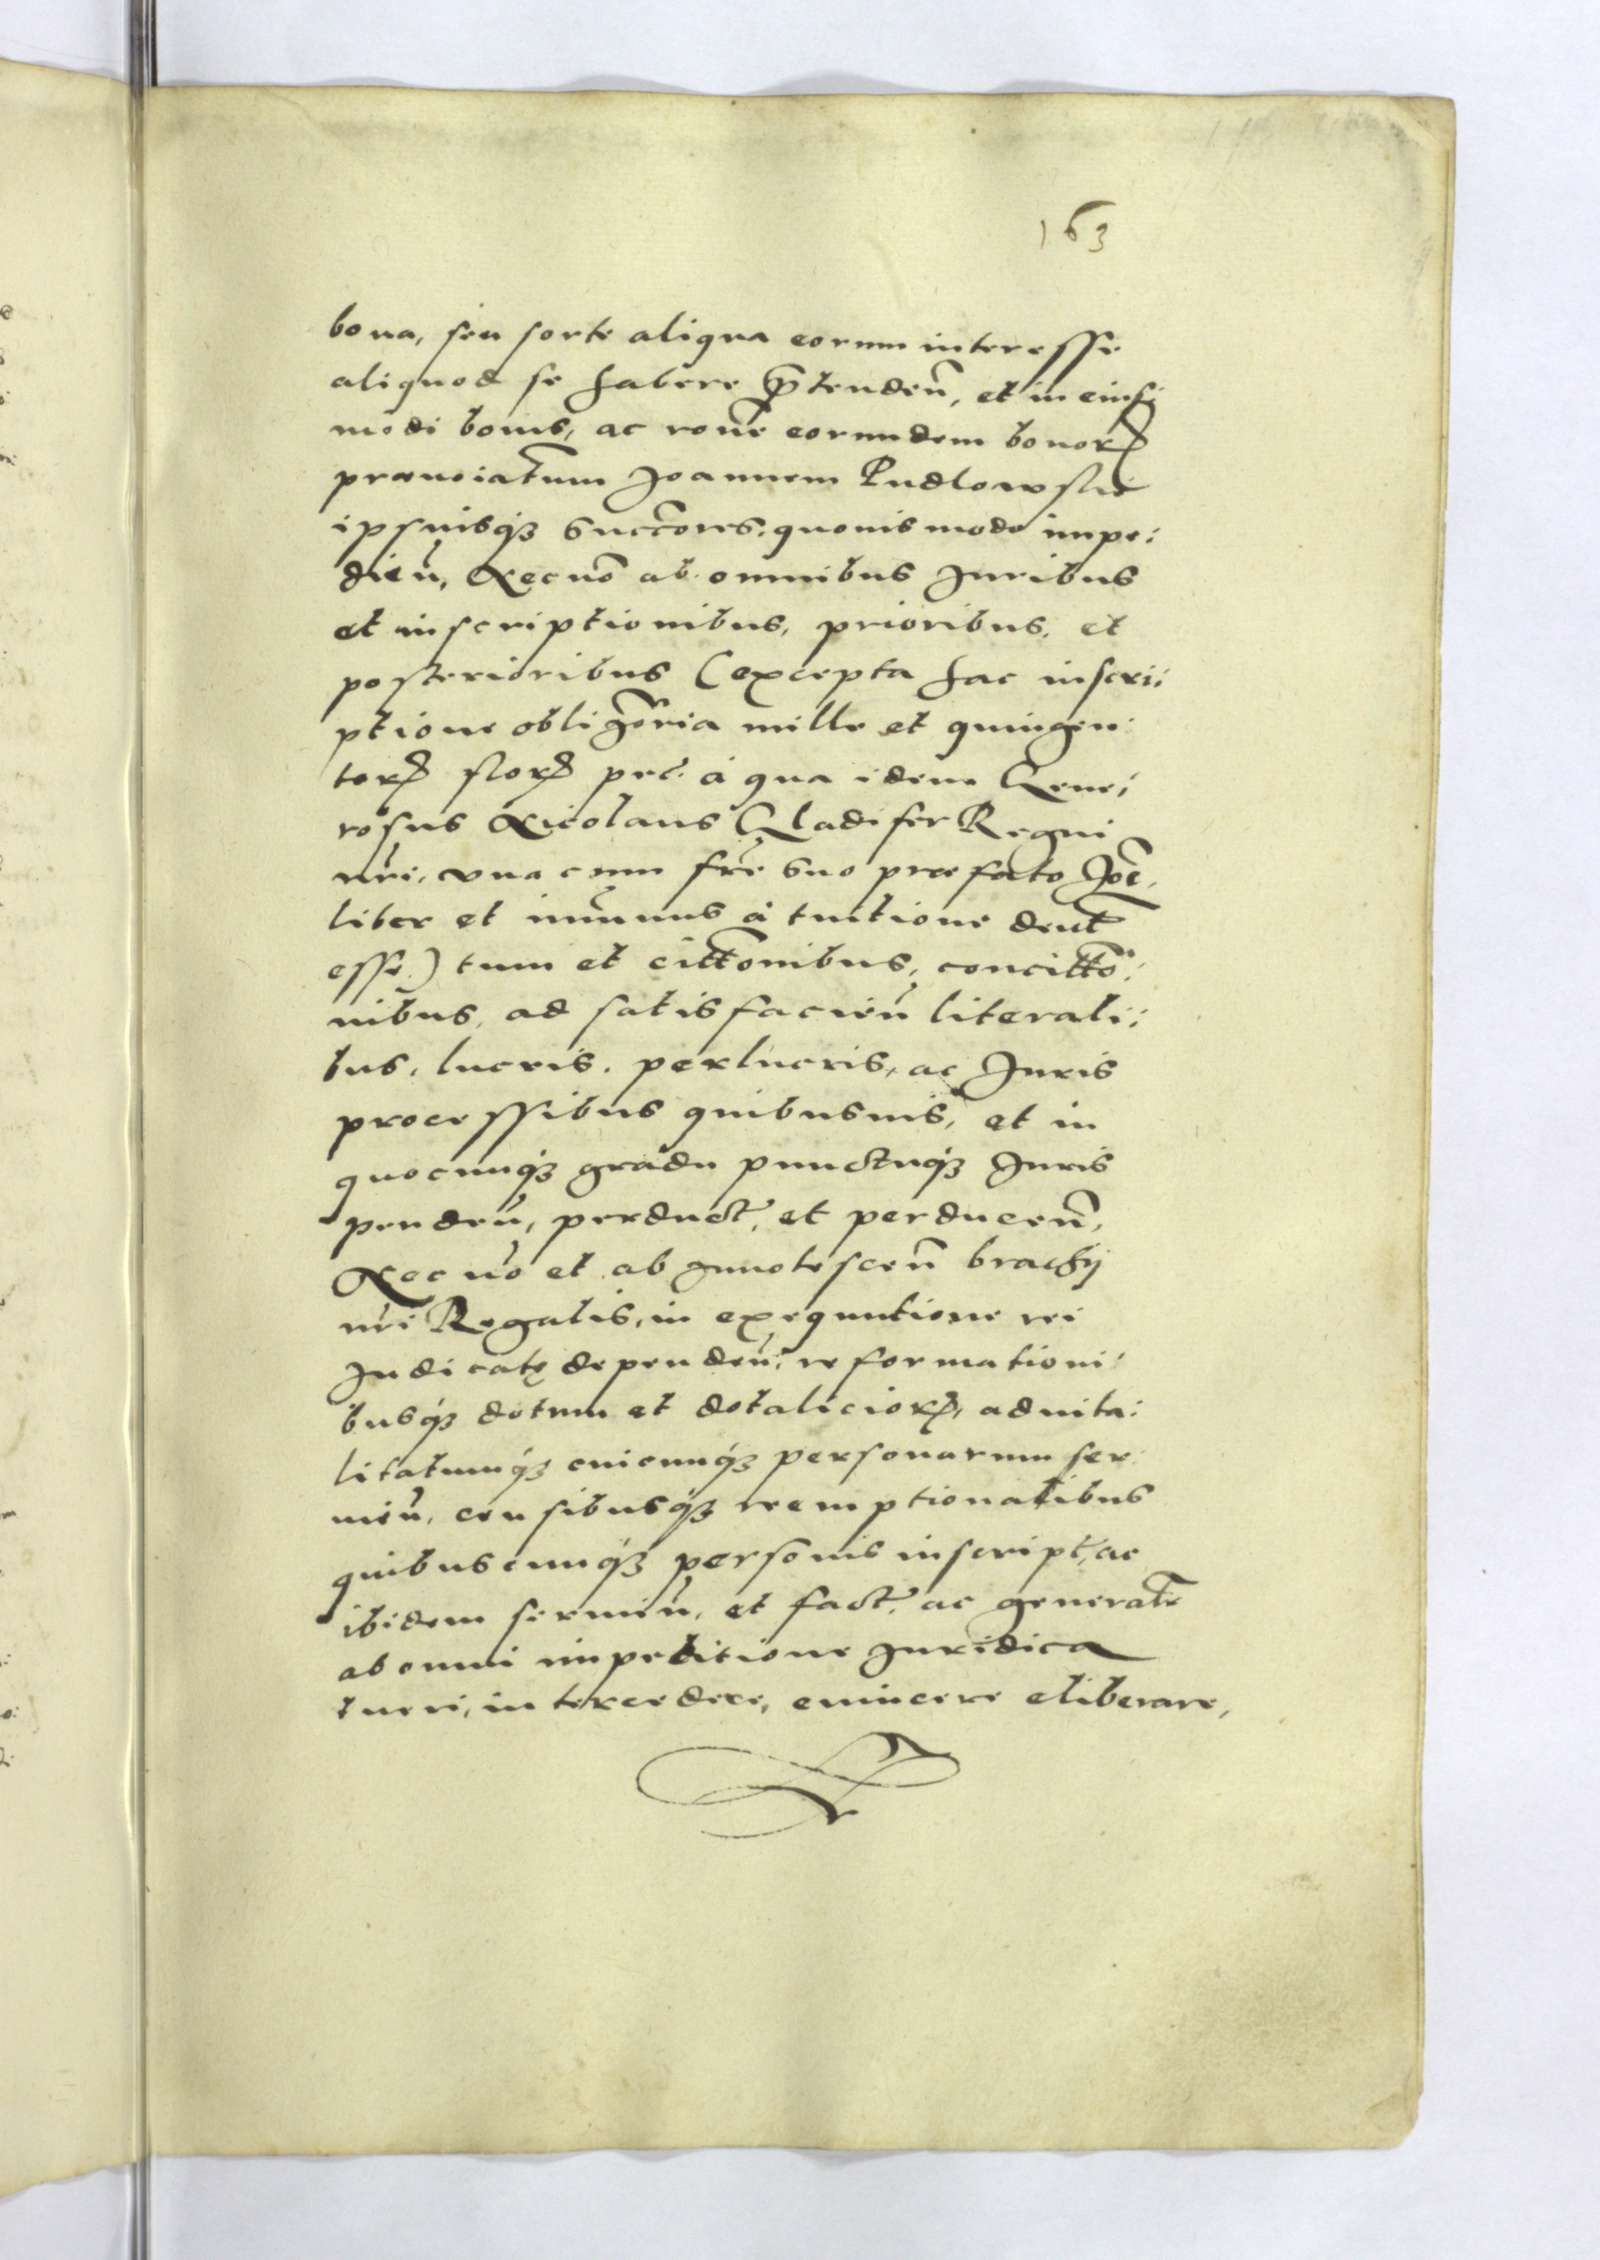 163
bona, seu sorte aliqua eorum interesse
aliquod se habere prtenden̄, et in eiusꝭ
modi bonis, ac ron̄e eorundem bonorꝝ
prænoiatum Joannem Pudlowskii
ipsiusq́ꝫ succ̄ores, quouis modo impe:
dien̄, Necnō ab omnibus Juribus
et inscriptionibus, prioribus, et
posterioribus (excepta hac inscri:
ptione oblig̃oria mille et quingen:
torꝝ florꝝ pec̄. à qua idem Gene:
rosus Nicolaus Gladifer Regni
nr̄i, vna cum fr̄e suo præfato Joē,
liber et im̄unus à tuitione deut̃
esse) tum et citt̃onibus, concitt̃o:
nibus, ad satisfacien̄ literali:
bus, lucris, perlucris, ac Juris
processibus quibusuis, et in
quocunq́ꝫ gradu punctuq́ꝫ Juris
penden̄, perduct̃, et perducen̄,
Nec nō et ab Innotescen̄ brachij
nr̄i Regalis, in exequutione rei
Judicatę dependen̄, reformationi:
busq́ꝫ dotum et dotaliciorꝝ, aduita:
litatumq́ꝫ cuicunq́ꝫ personarum ser:
uien̄, censibusq́ꝫ reemptionalibus
quibuscunq́ꝫ personis inscript̃, ac
ibidem seruien̄, et fact̃, ac generalr̄
ab omni impeditione Juridica
tueri, intercedere, euincere eliberare,